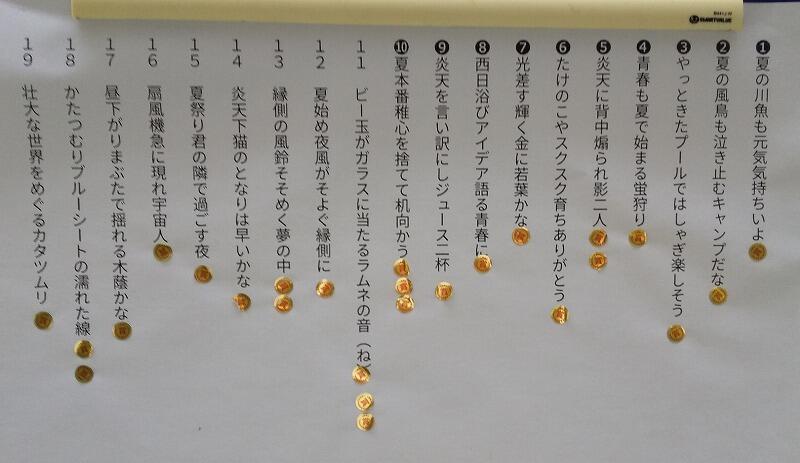 SMARTVALUE
❶夏の川魚も元気気持ちいよ
❷夏の風鳥も泣き止むキャンプだな
❸やっときたプールではしゃぎ楽しそう
❹青春も夏で始まる蛍狩り
❺炎天に背中煽られ影二人
❻たけのこやスクスク育ちありがとう
❼光差す輝く金に若葉かな
❽西日浴びアイデア語る青春に
❾炎天を言い訳にしジュース二杯
❿夏本番稚心を捨てて机向かう
11 ビー玉がガラスに当たるラムネの音(ね)
12 夏始め夜風がそよぐ縁側に
13 縁側の風鈴そそめく夢の中
14 炎天下猫のとなりは早いかな
15 夏祭り君の隣で過ごす夜
16 扇風機急に現れ宇宙人
17 昼下がりまぶたで揺れる木蔭かな
18 かたつむりブルーシートの濡れた線
19 壮大な世界をめぐるカタツムリ